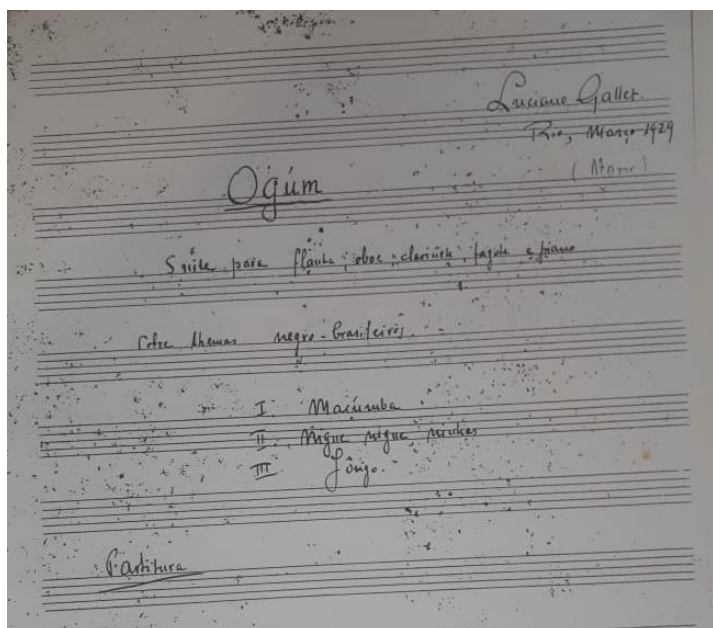 Luciano Gallet.
Rio, Março-1929
Ogúm
Suite para flauta, oboe, clarinete, fagote e piano
sobre themas negro-brasileiros.
I Macúmba
II Nigue nigue ninhas
III Jôngo.
Partitura